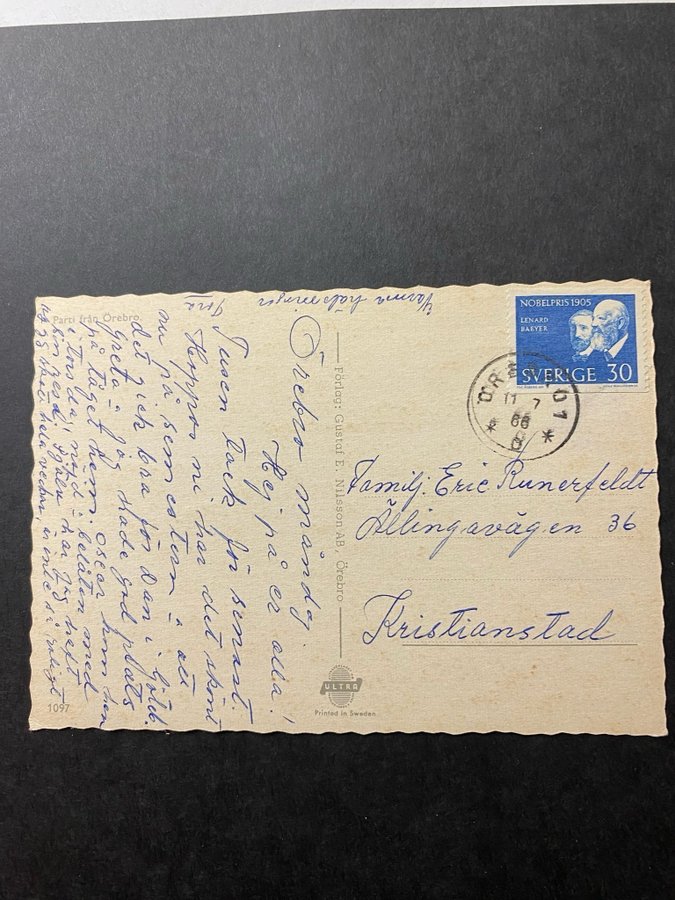 Parti från Örebro.
Örebro måndag.
Hej på er alla!
Tusen tack för senast.
Hoppas ni har det skönt
nu på semestern å att
det gick bra för Dan i
Greta å jag hade god plats
på tåget hem. Oscar kom hem
i torsda, nöjd å belåten med
sin resa. Själv har jag haft
hela veckan,
Varma hälsningar
1097
Förlag: Gustaf E. Nilsson AB, Örebro
ULTRA
Printed in Sweden
NOBELPRIS 1905
LENARD
BAEYER
SVERIGE 30
ÖREBRO 1
11 7
66
Familj. Eric Runerfeldt
Ällingavägen 36
Kristianstad